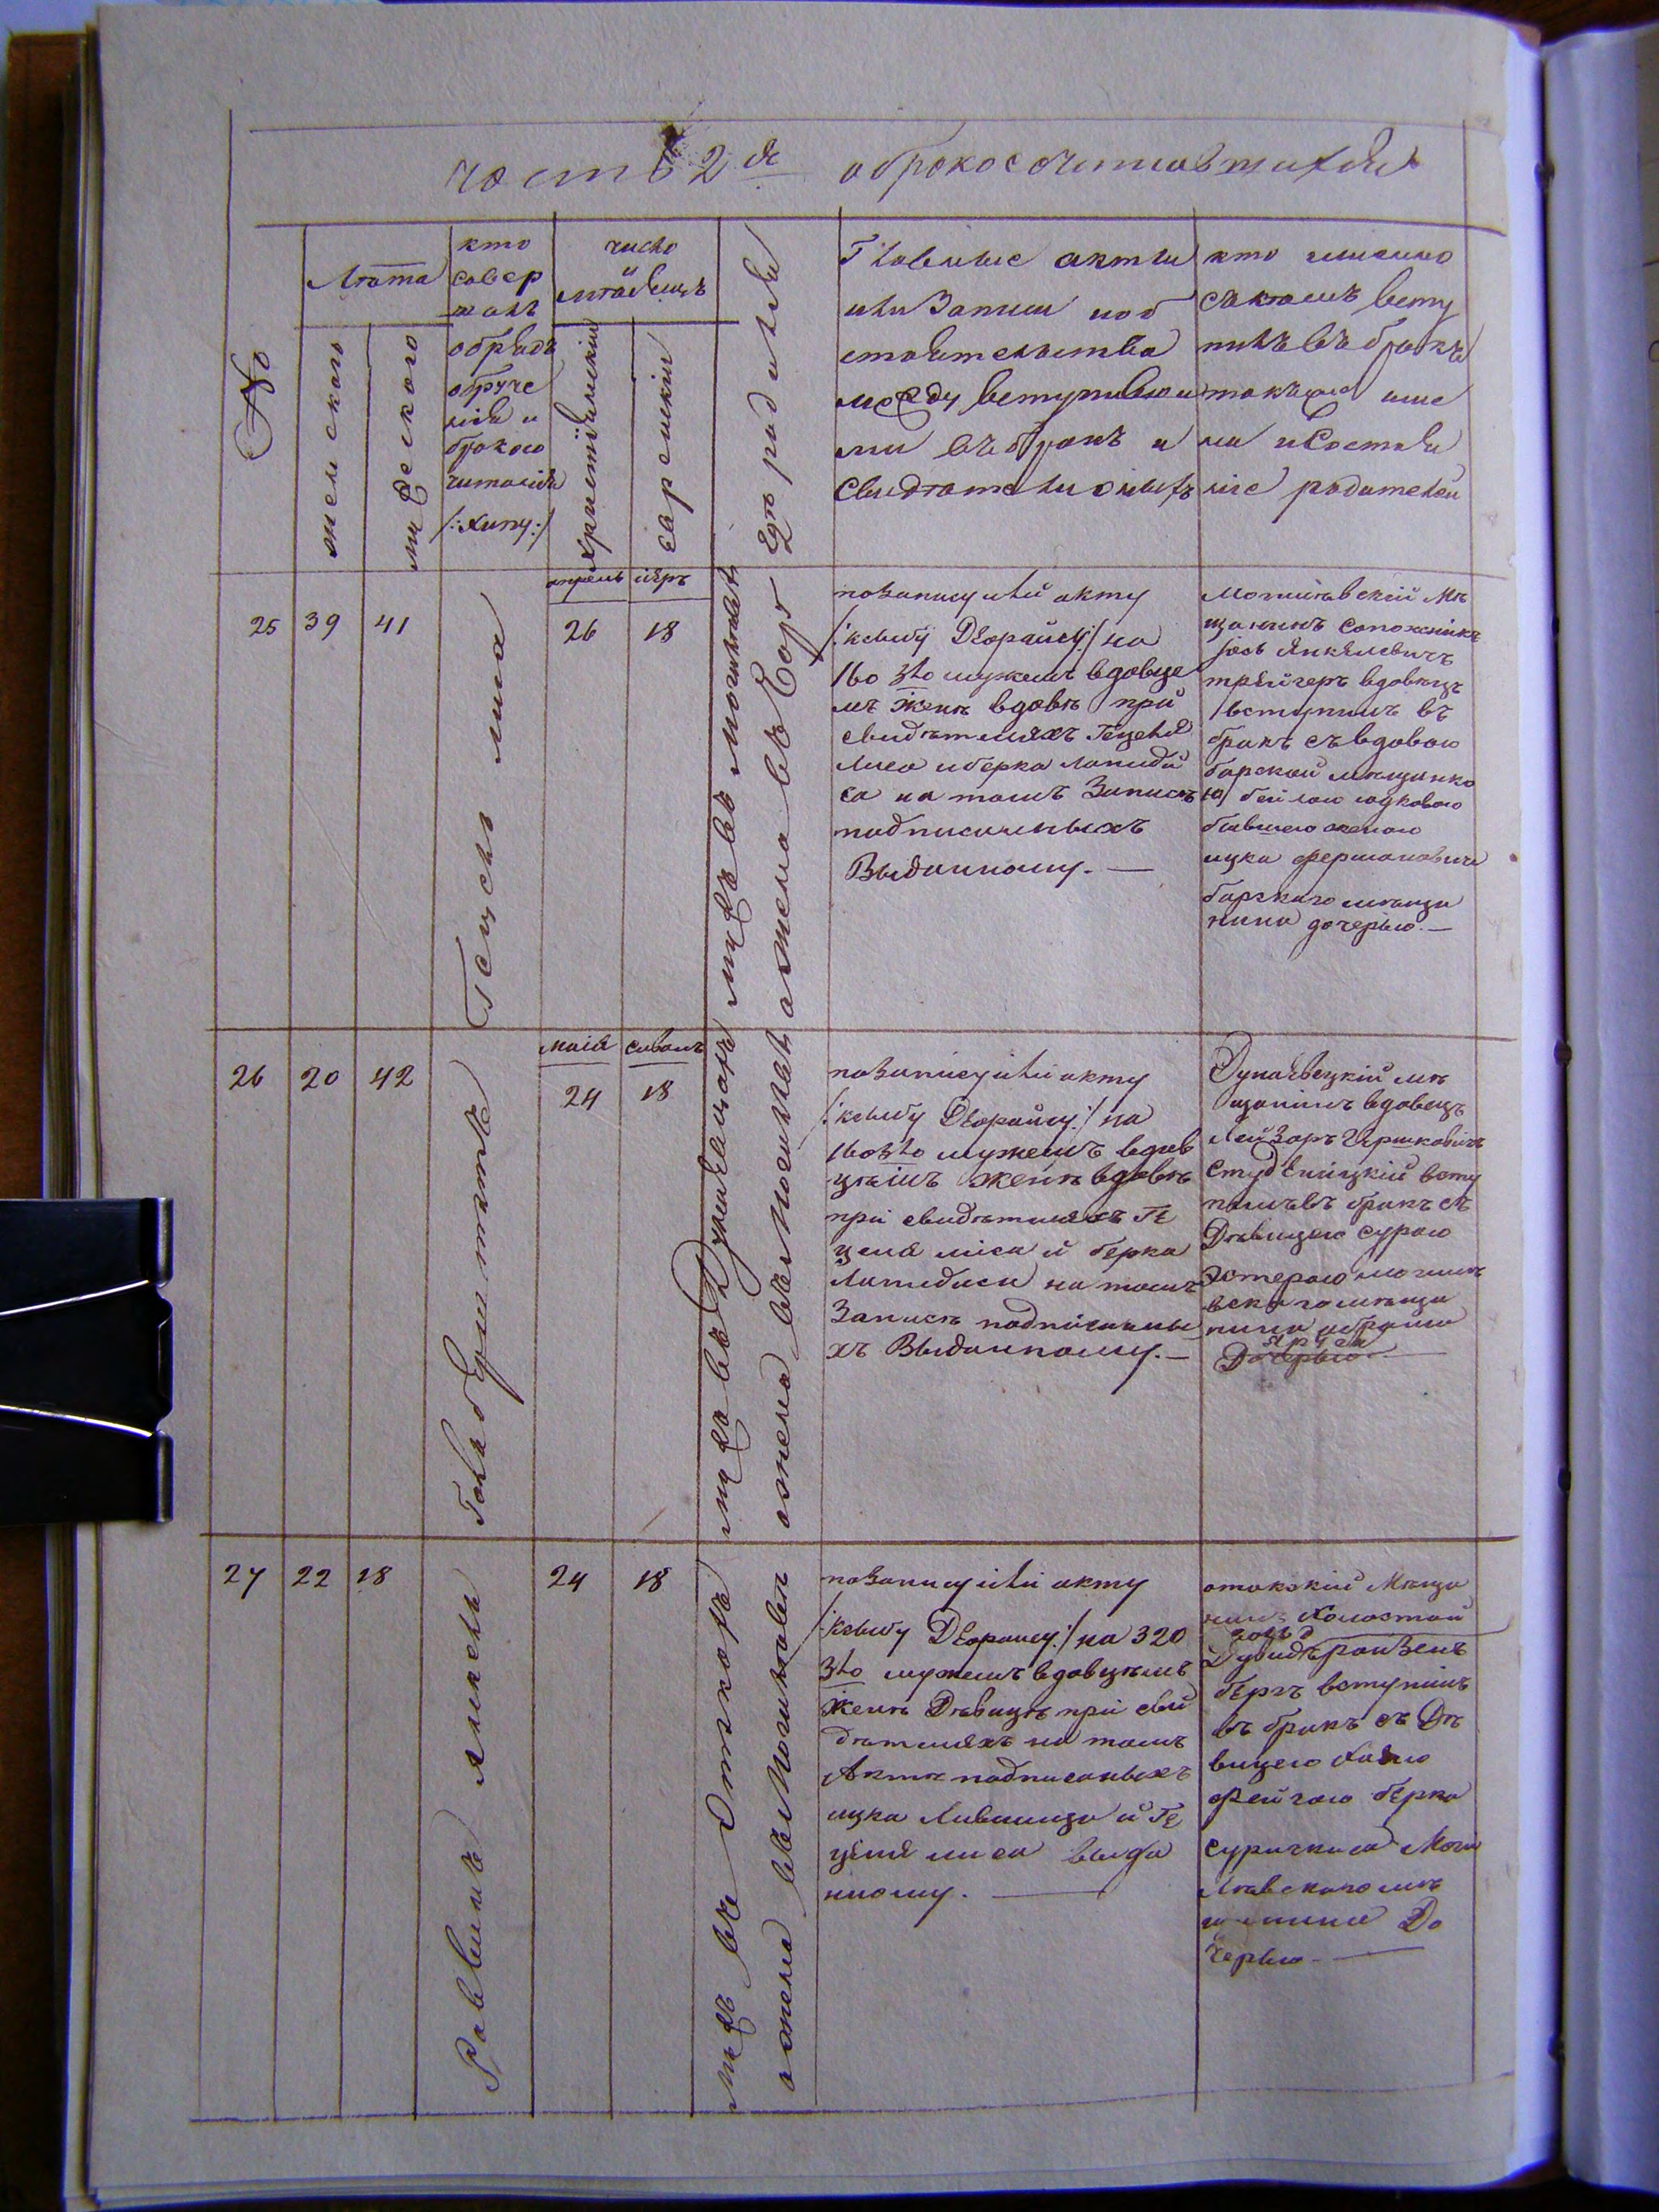 часть 2я обракосочитавшихся
№
Лѣта
женского
мужеского
кто
совер
шалъ
обрядъ
обруче
нія и
бракосо
читанія
/:хипу:/
число
и мѣсяцъ
христіянскій
еврейскій
Где родили
Главные акты
или записи и об
стоятельства
между вступившы
ми въ бракъ и
свидѣтели оныхъ
кто имянно
съ кемъ всту
пилъ въ бракъ
также име
на и состоя
ніе родителей
25
39
41
Гецель лиса
апрель
26
іяръ
18
мужъ въ могилевѣ
а жена въ Барѣ
по записи или акту
/:ксыву Деорайсу:/ на
160 зло мужемъ вдовце
мъ жене вдовѣ при
свидѣтеляхъ Гецеля
лиса и берка лапиды
са на томъ записѣ
подписанныхъ
Выданному. —
могилѣвскій мѣ
щанинъ сапожникъ
іось Янкелевичъ
трейгеръ вдовецъ
вступилъ въ
бракъ съ вдовою
барской мещанко
ю бейлою юдковою
бывшею женою
ицка фермановича
барскаго мѣща
нина дочерью. —
26
20
42
маія
24
сиванъ
18
мужъ въ Дунаевцахъ
а жена въ Могилевѣ
по записи или акту
/:ксыву Деорайсу:/ на
160 зло мужемъ вдов
цѣмъ жене вдовѣ
при свидѣтеляхъ Ге
целя лиса и берка
Лапидиса на томъ
Записѣ подписанны
хъ Выданному. —
Дунаѣвецкій мѣ
щанинъ вдовецъ
Лейзоръ Гершковичъ
Студеницкій всту
пилъ въ бракъ съ
Дѣвицею сурою
Эстерою могилѣ
вскаго мѣща
нина абрама
Дочерью —
27
22
18
Раввинъ
24
18
мужъ въ Отакахъ
а жена въ Могилевѣ
по записи или акту
/:ксыву Деорайсу:/ на 320
зло мужемъ вдовцѣмъ
жене Дѣвицѣ при сви
дѣтеляхъ на томъ
Акте подписаныхъ
ицка Лившица и Ге
целя лиса выда
нному. —
отакскій Мѣща
нинъ Холостой
Дувидъ ройзенъ
бергъ вступилъ
въ бракъ съ Дѣ
вицею хаею
фейгою берка
Моги
лѣвскаго мѣ
щанина До
черью —